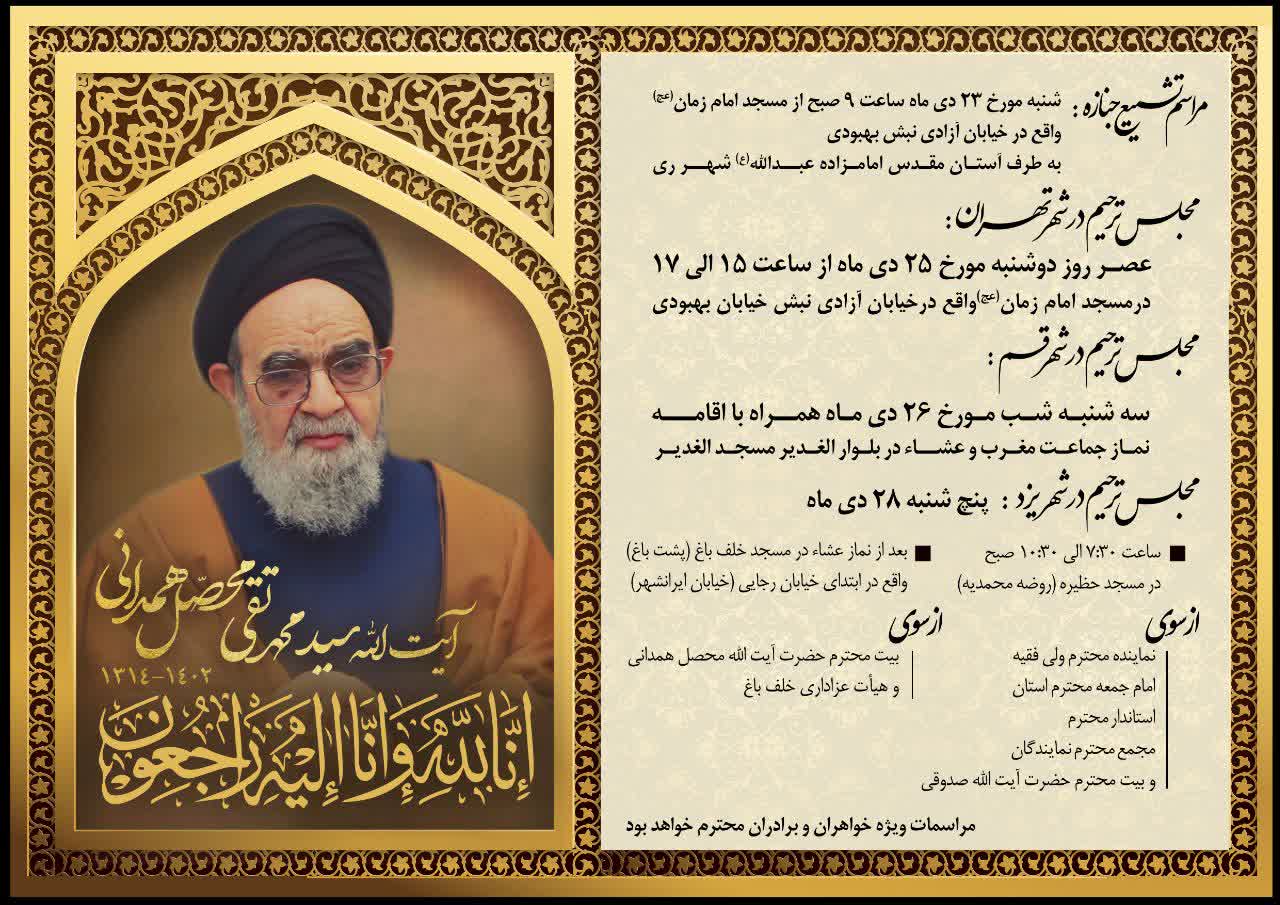 مراسم تشییع جنازه : شنبه مورخ ۲۳ دی ماه ساعت ۹ صبح از مسجد امام زمان(عج)
واقع در خیابان آزادی نبش بهبودی
به طرف آستان مقدس امامزاده عبدالله(ع) شهر ری
مجلس ترحیم در شهر تهران :
عصر روز دوشنبه مورخ ۲۵ دی ماه از ساعت ۱۵ الی ۱۷
درمسجد امام زمان(عج)واقع درخیابان آزادی نبش خیابان بهبودی
مجلس ترحیم در شهر قم :
سه شنبه شب مورخ ۲۶ دی ماه همراه با اقامه
نماز جماعت مغرب و عشاء در بلوار الغدیر مسجد الغدیر
مجلس ترحیم در شهر یزد : پنج شنبه ۲۸ دی ماه
ساعت ۷:۳۰ الی ۱۰:۳۰ صبح
در مسجد حظیره (روضه محمدیه)
بعد از نماز عشاء در مسجد خلف باغ (پشت باغ)
واقع در ابتدای خیابان رجایی (خیابان ایرانشهر)
از سوی
نماینده محترم ولی فقیه
امام جمعه محترم استان
استاندار محترم
مجمع محترم نمایندگان
و بیت محترم حضرت آیت الله صدوقی
از سوی
بیت محترم حضرت آیت الله محصل همدانی
و هیأت عزاداری خلف باغ
مراسمات ویژه خواهران و برادران محترم خواهد بود
آیت الله سید محمد تقی محصّل همدانی
۱۳۱۴-۱۴۰۲
إِنَّا لِلَّهِ وَإِنَّا إِلَيْهِ رَاجِعُونَ